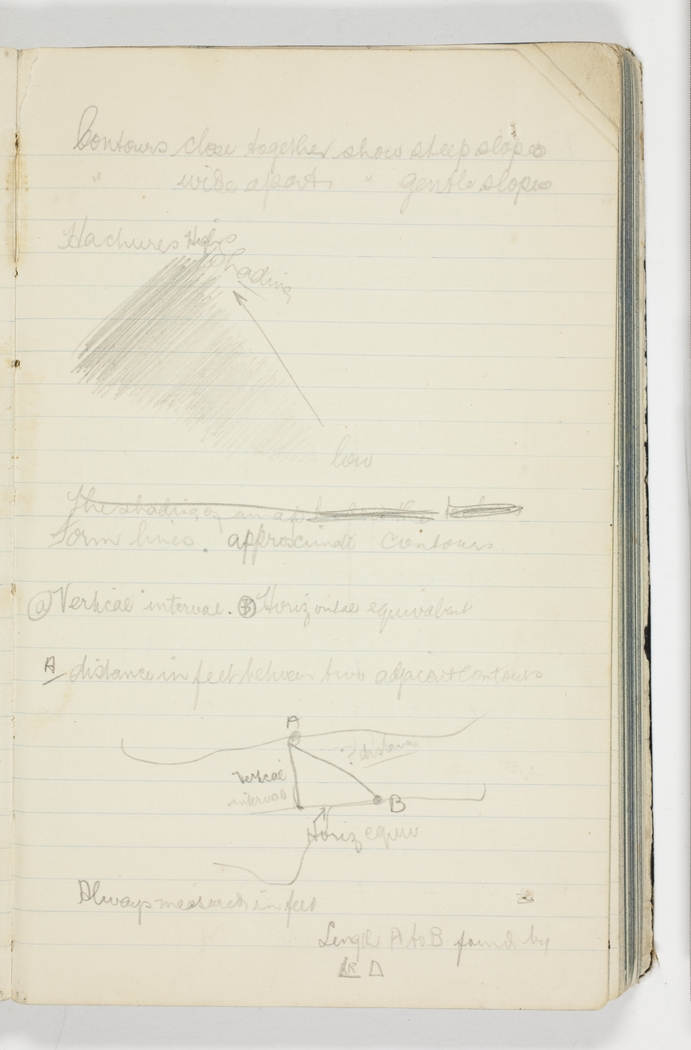 Contours close together show steep slopes
" wide apart " gentle slopes
Hachures High
Shading
low
The shading of
Form lines. approximate contours.
(a) Vertical interval. (B) Horizontal equivalent
A distance in feet between two adjacent contours
A
? distance
Vertical
interval
B
Horiz equiv
Always measured in feet
Length A to B found by
LR Δ